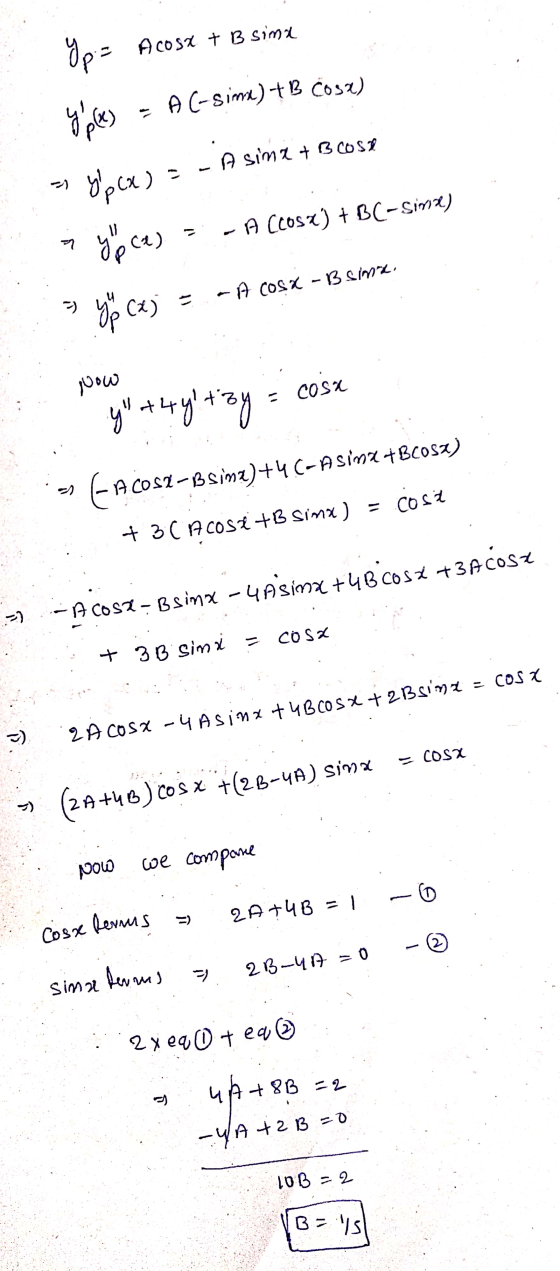 yp = A cosx + B sinx
y'p(x) = A (-sinx) + B cosx)
=> y'p(x) = - A sinx + B cosx
=> y''p(x) = - A (cosx) + B(-sinx)
=> y''p(x) = - A cosx - B sinx.
Now
y'' + 4y' + 3y = cosx
=> (-A cosx - B sinx) + 4 (-A sinx + B cosx)
+ 3 (A cosx + B sinx) = cosx
=> - A cosx - B sinx - 4A sinx + 4B cosx + 3A cosx
+ 3B sinx = cosx
=> 2A cosx - 4A sinx + 4B cosx + 2B sinx = cosx
=> (2A+4B) cosx + (2B-4A) sinx = cosx
Now we compare
cosx terms => 2A + 4B = 1 — ①
sinx terms => 2B - 4A = 0 - ②
2 x eq ① + eq ②
=> 4A + 8B = 2
-4A + 2B = 0
10B = 2
B = 1/5